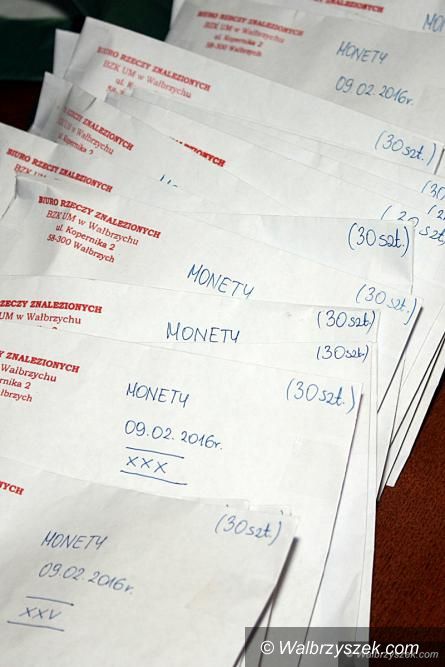 MONETY
BIURO RZECZY ZNALEZIONYCH
BZK UM w Wałbrzychu
ul. Kopernika 2
58-300 Wałbrzych
MONETY
09.02.2016r.
BIURO RZECZY ZNALEZIONYCH
BZK UM w Wałbrzychu
(30szt.)
BIURO RZECZY ZNALEZIONYCH
BZK UM w Wałbrzychu
ul. Kopernika 2
BIURO RZECZY ZNALEZIONYCH
BIURO RZECZY ZNALEZIONYCH
BZK UM w Wałbrzychu
ul. Kopernika 2
58-300 Wałbrzych
(30szt.)
MONETY
(30szt.)
RZECZY ZNALEZIONYCH
UM w Wałbrzychu
(30szt.)
MONETY
(30szt.)
ZNALEZIONYCH
Wałbrzychu
2
(30szt.)
MONETY
09.02.2016r.
XXX
(30szt.)
MONETY
09.02.2016r.
XXV
© Walbrzyszek.com
© Walbrzyszek.com